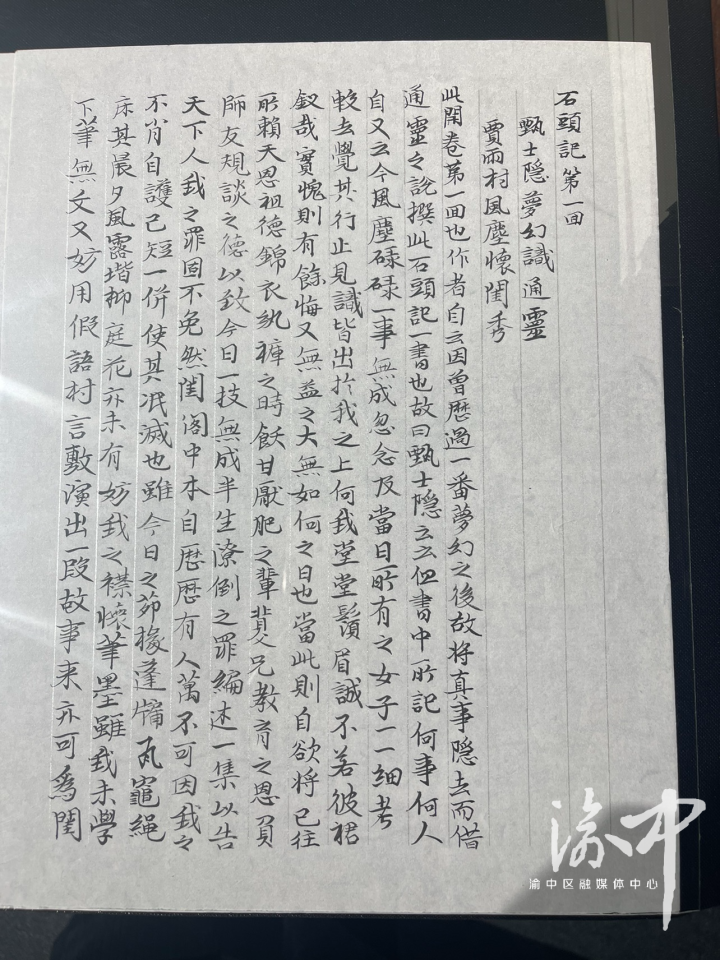 石頭記第一回
甄士隱夢幻識通靈
賈雨村風塵懷閨秀
此開卷第一回也作者自云因曾歷過一番夢幻之後故将真事隐去而借
通靈之說撰此石頭記一書也故曰甄士隐云云但書中所記何事何人
自又云今風塵碌碌一事無成忽念及當日所有之女子一一細考
較去覺其行止見識皆出於我之上何我堂堂鬚眉誠不若彼裙
釵哉實愧則有餘悔又無益之大無如何之日也當此則自欲将已往
所賴天恩祖德錦衣紈褲之時飫甘厭肥之輩負父兄教育之恩負
師友規談之德以致今日一技無成半生潦倒之罪編述一集以告
天下人我之罪固不免然閨阁中本自歷歷有人萬不可因我之
不肖自護己短一併使其泯滅也雖今日之茆椽蓬牖瓦竈繩
床其晨夕風露堦柳庭花亦未有妨我之襟懷筆墨雖我未學
下筆無文又妨用假語村言敷演出一段故事来亦可為閨
渝中
渝中区融媒体中心